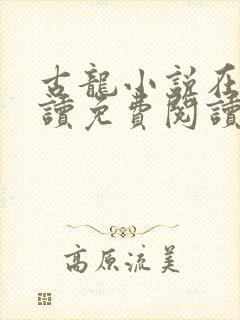 古龍小說在
讀免費閱讀
高原流美